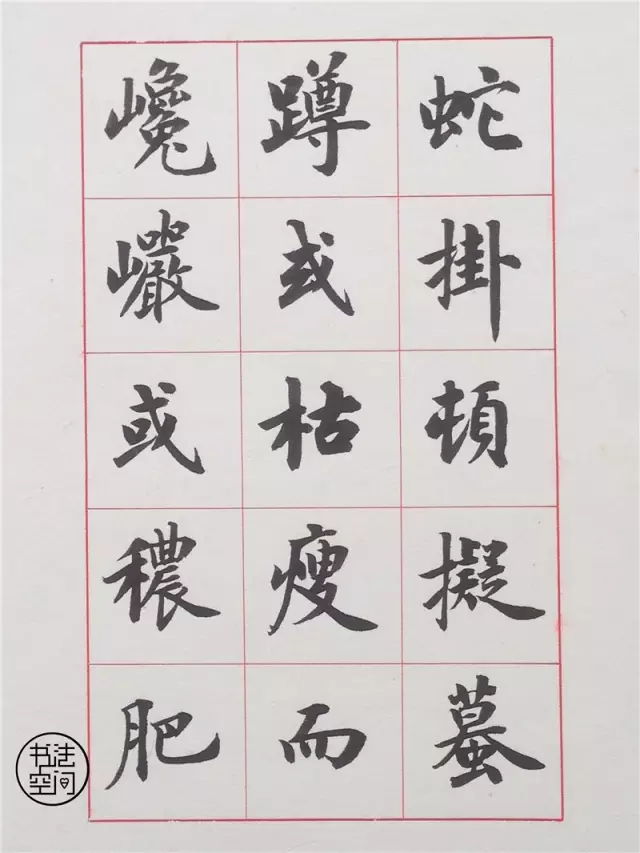 蛇掛頓擬蟇
蹲或枯瘦而
巉巖或穠肥
书法空间